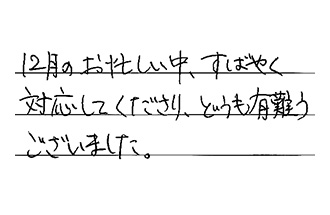 12月のお忙しい中、すばやく
対応してくださり、どうも有難う
ございました。